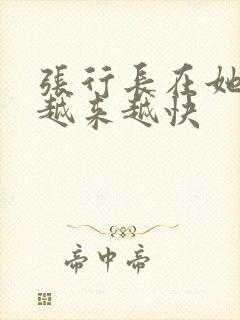 張行長在她
越来越快
帝中帝